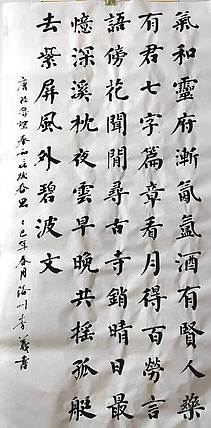 氣和靈府漸氤氳酒有賢人藥
有君七字篇章看月得百勞言
語傍花聞閒尋古寺銷晴日最
憶深溪枕夜雲早晚共搖孤艇
去紫屏風外碧波文
唐 奉和 乙巳年春月 李義書